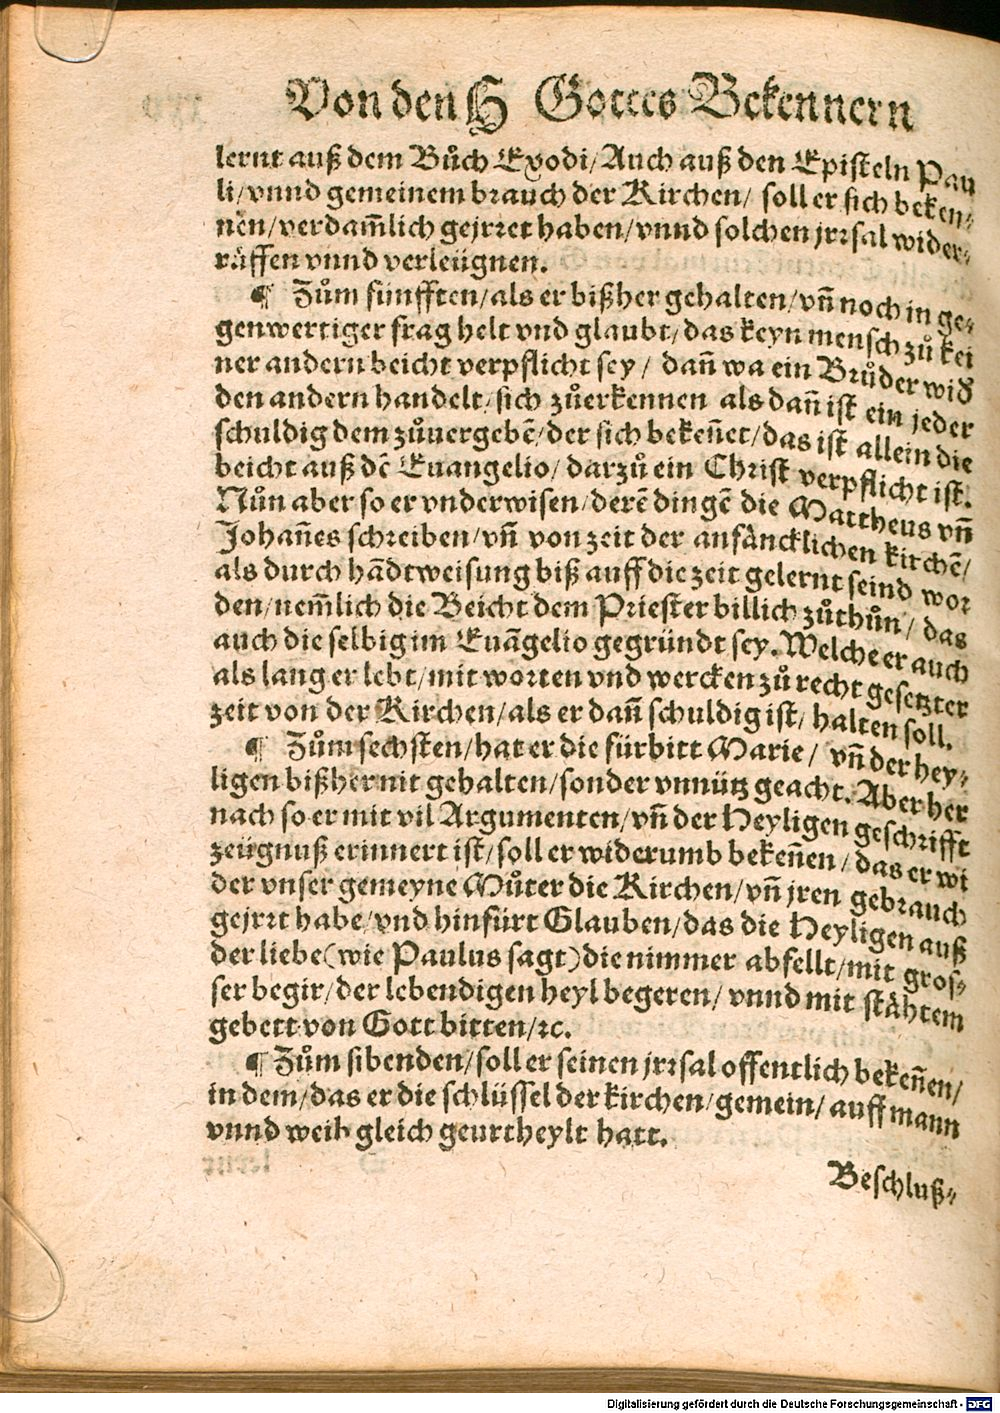 Von den H Gottes Bekennern
lernt auß dem Bůch Exodi/Auch auß den Episteln Pau
li/vnnd gemeinem brauch der Kirchen/ soll er sich beken⸗
nen/verdam̃lich gejrret haben/vnnd solchen jrrsal wider⸗
růffen vnnd verleügnen.
¶ Zům fünfften/als er bißher gehalten/vñ noch in ge⸗
genwertiger frag helt vnd glaubt/das keyn mensch zů kei
ner andern beicht verpflicht sey/ dañ wa ein Brůder wid
den andern handelt/sich zůerkennen als dañ ist ein jeder
schuldig dem zůuergebẽ/der sich bekeñet/das ist allein die
beicht auß dẽ Euangelio/darzů ein Christ verpflicht ist.
Nůn aber so er vnderwisen/derẽ dingẽ die Mattheus vñ
Johañes schreiben/vñ von zeit der anfäncklichen kirchẽ/
als durch hãdtweisung biß auff die zeit gelernt seind wor
den/nem̃lich die Beicht dem Priester billich zůthůn/das
auch die selbig im Euãgelio gegründt sey. Welche er auch
als lang er lebt/mit worten vnd wercken zů recht gesetzter
zeit von der Kirchen/als er dañ schuldig ist/halten soll.
¶ Zům sechsten/hat er die fürbitt Marie/ vñ der hey⸗
ligen bißher nit gehalten/sonder vnnütz geacht. Aber her
nach so er mit vil Argumenten/vñ der Heyligen geschrifft
zeügnuß erinnert ist/soll er widerumb bekeñen/das er wi
der vnser gemeyne Můter die Kirchen/vñ jren gebrauch
gejrrt habe/vnd hinfürt Glauben/das die Heyligen auß
der liebe(wie Paulus sagt)die nimmer abfellt/mit gros⸗
ser begir/der lebendigen heyl begeren/ vnnd mit stähtem
gebett von Gott bitten/ꝛc.
¶ Zům sibenden/soll er seinen jrrsal offentlich bekeñen/
in dem/das er die schlüssel der kirchen/gemein/auff mann
vnnd weib gleich geurtheylt hatt.
Beschluß⸗
Digitalisierung gefördert durch die Deutsche Forschungsgemeinschaft - DFG